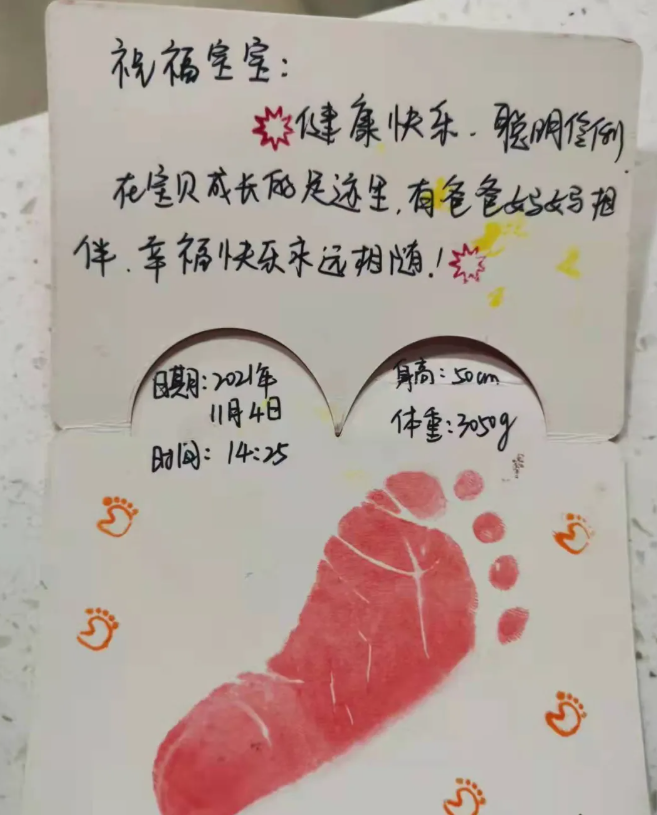 祝福宝宝:
健康快乐.聪明伶俐
在宝贝成长的足迹里,有爸爸妈妈相
伴.幸福快乐永远相随!
日期:2021年
11月4日
时间:14:25
身高:50cm
体重:3050g